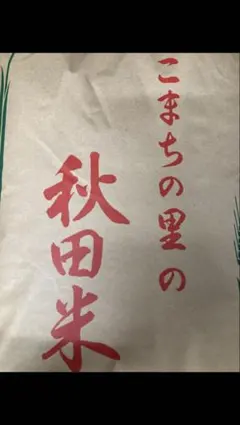 こまちの里の
秋田米